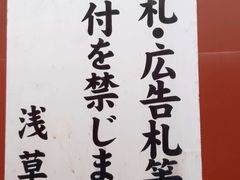 札・広告札等
付を禁じま
浅草